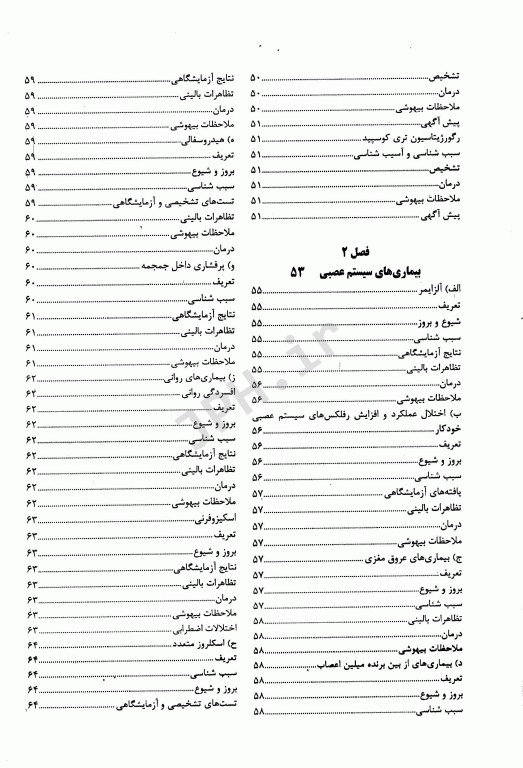 تشخیص ۵۰
درمان ۵۰
ملاحظات بیهوشی ۵۰
پیش آگهی ۵۱
رگورژیتاسیون تری کوسپید ۵۱
سبب شناسی و آسیب شناسی ۵۱
تشخیص ۵۱
درمان ۵۱
ملاحظات بیهوشی ۵۱
پیش آگهی ۵۱
فصل ۲
بیماری‌های سیستم عصبی ۵۳
الف) آلزایمر ۵۵
تعریف ۵۵
شیوع و بروز ۵۵
سبب شناسی ۵۵
نتایج آزمایشگاهی ۵۵
تظاهرات بالینی ۵۵
درمان ۵۶
ملاحظات بیهوشی ۵۶
ب) اختلال عملکرد و افزایش رفلکس‌های سیستم عصبی
خودکار ۵۶
تعریف ۵۶
بروز و شیوع ۵۶
سبب شناسی ۵۶
یافته‌های آزمایشگاهی ۵۷
تظاهرات بالینی ۵۷
درمان ۵۷
ملاحظات بیهوشی ۵۷
ج) بیماری‌های عروق مغزی ۵۷
تعریف ۵۷
بروز و شیوع ۵۷
سبب شناسی ۵۷
تظاهرات بالینی ۵۸
درمان ۵۸
ملاحظات بیهوشی ۵۸
د) بیماری‌های از بین برنده میلین اعصاب ۵۸
تعریف ۵۸
بروز و شیوع ۵۸
سبب شناسی ۵۸
نتایج آزمایشگاهی ۵۹
تظاهرات بالینی ۵۹
درمان ۵۹
ملاحظات بیهوشی ۵۹
ه) هیدروسفالی ۵۹
تعریف ۵۹
بروز و شیوع ۵۹
سبب شناسی ۵۹
تست‌های تشخیصی و آزمایشگاهی ۵۹
تظاهرات بالینی ۶۰
ملاحظات بیهوشی ۶۰
درمان ۶۰
و) پرفشاری داخل جمجمه ۶۰
تعریف ۶۰
سبب شناسی ۶۰
نتایج آزمایشگاهی ۶۱
تظاهرات بالینی ۶۱
درمان ۶۱
ملاحظات بیهوشی ۶۱
ز) بیماری‌های روانی ۶۲
افسردگی روانی ۶۲
تعریف ۶۲
بروز و شیوع ۶۲
سبب شناسی ۶۲
نتایج آزمایشگاهی ۶۲
تظاهرات بالینی ۶۲
درمان ۶۲
ملاحظات بیهوشی ۶۲
اسکیزوفرنی ۶۳
تعریف ۶۳
بروز و شیوع ۶۳
نتایج آزمایشگاهی ۶۳
تظاهرات بالینی ۶۳
درمان ۶۳
ملاحظات بیهوشی ۶۳
اختلالات اضطرابی ۶۳
ح) اسکلروز متعدد ۶۴
تعریف ۶۴
سبب شناسی ۶۴
بروز و شیوع ۶۴
تست‌های تشخیصی و آزمایشگاهی ۶۴
JPH.ir